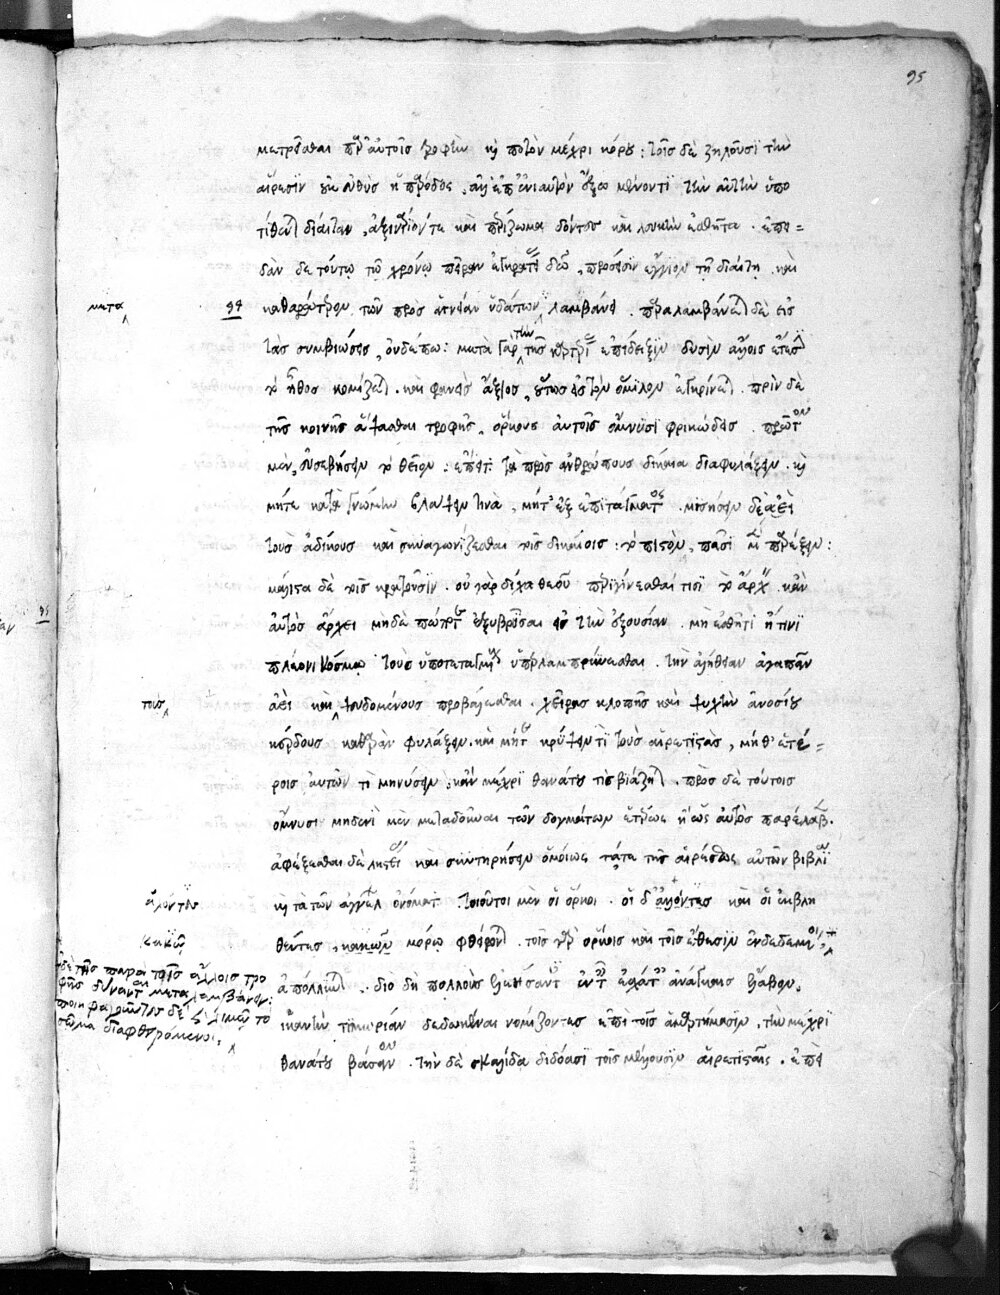 μετρεῖσθαι παρ' αὐτοῖς τροφὴν καὶ ποτὸν μέχρι κόρου : τοῖς δὲ ζηλοῦσι τὴν
αἵρεσιν οὐκ εὐθὺς ἡ πάροδος . ἀλλ' ἐπ' ἐνιαυτὸν ἔξω μένοντι τὴν αὐτὴν ὑπο
τίθενται δίαιταν , ἀξινίδιόν τε καὶ περίζωμα δόντες καὶ λευκὴν ἐσθῆτα . ἐπει=
δὰν δὲ τούτῳ τῷ χρόνῳ πεῖραν ἐγκρατείας δῷ , πρόσεισιν ἔγγιον τῇ διαίτῃ . καὶ
μετα 94 καθαρωτέρων τῶν πρὸς ἁγνείαν ὑδάτων λαμβάνει . παραλαμβάνεται δὲ εἰς
τὰς συμβιώσεις , οὐδέπω : μετὰ γὰρ τὴν τῆς καρτερίας ἐπίδειξιν δυσὶν ἄλλοις ἔτεσι
τὸ ἦθος κομίζεται . καὶ φανεὶς ἄξιος , οὕτως εἰς τὸν ὅμιλον ἐγκρίνεται . πρὶν δὲ
τῆς κοινῆς ἅψασθαι τροφῆς , ὅρκους αὐτοῖς ὄμνυσι φρικώδεις . πρῶτον
μὲν , εὐσεβήσειν τὸ θεῖον : ἔπειτα τὰ πρὸς ἀνθρώπους δίκαια διαφυλάξειν . καὶ
μήτε κατὰ γνώμην βλάψειν τινὰ , μήτ' ἐξ ἐπιτάγματος . μισήσειν δὲ ἀεὶ
τοὺς ἀδίκους καὶ συναγωνίζεσθαι τοῖς δικαίοις : τὸ πιστὸν , πᾶσι μὲν παρέξειν :
μάλιστα δὲ τοῖς κρατοῦσιν . οὐ γὰρ δίχα θεοῦ περιγίνεσθαί τισι τὸ ἄρχειν . κἂν
αὐτὸς ἄρχει μηδὲ πώποτε ἐξυβρίσαι εἰς τὴν ἐξουσίαν . μὴ ἐσθῆτι ἤ τινι
πλείονι κόσμῳ τοὺς ὑποτεταγμένους ὑπερλαμπρύνεσθαι . τὴν ἀλήθειαν ἀγαπᾶν
τοὺς ἀεὶ καὶ ψευδομένους προβάλλεσθαι . χεῖρας κλοπῆς καὶ ψυχὴν ἀνοσίου
κέρδους καθαρὰν φυλάξειν . καὶ μήτε κρύψειν τι τοὺς αἱρετιστὰς , μήθ' ἑτέ=
ροις αὐτῶν τὶ μηνύσειν , κἂν μέχρι θανάτου τὶς βιάζηται . πρὸς δὲ τούτοις
ὄμνυσι μηδενὶ μὲν μεταδοῦναι τῶν δογμάτων ἑτέρως ἢ ὡς αὐτὸς παρέλαβεν .
ἀφέξεσθαι δὲ λῃστείας καὶ συντηρήσειν ὁμοίως τά τε τῆς αἱρέσεως αὐτῶν βιβλία
ἁλόντας καὶ τὰ τῶν ἀγγέλων ὀνόματα . τοιοῦτοι μὲν οἱ ὅρκοι . οἱ δ' καὶ οἱ ἐκβλη
κακῷ θέντες , κακῶν μόρῳ φθείρονται . τοῖς γὰρ ὅρκοις καὶ τοῖς ἔθεσιν ἐνδεδεμένοι
δὲ τῆς παρὰ τοῖς ἄλλοις τρο
φῆς δύνανται μεταλαμβάνειν :
ποηφαγοῦντες δὲ καὶ λιμῷ τὸ
σῶμα διαφθειρόμενοι ,
ἀπόλλυνται . διὸ δὴ πολλοὺς ἐλεήσαντες ἐν ταῖς ἐσχάταις ἀνάγκαις ἔλαβον ,
ἱκανὴν τιμωρίαν δεδωκέναι νομίζοντες ἐπὶ τοῖς ἁμαρτήμασιν , τὴν μέχρι
θανάτου βάσανον . τὴν δὲ σκαλίδα διδόασι τοῖς μέλλουσιν αἱρετισταῖς . ἐπεὶ
95